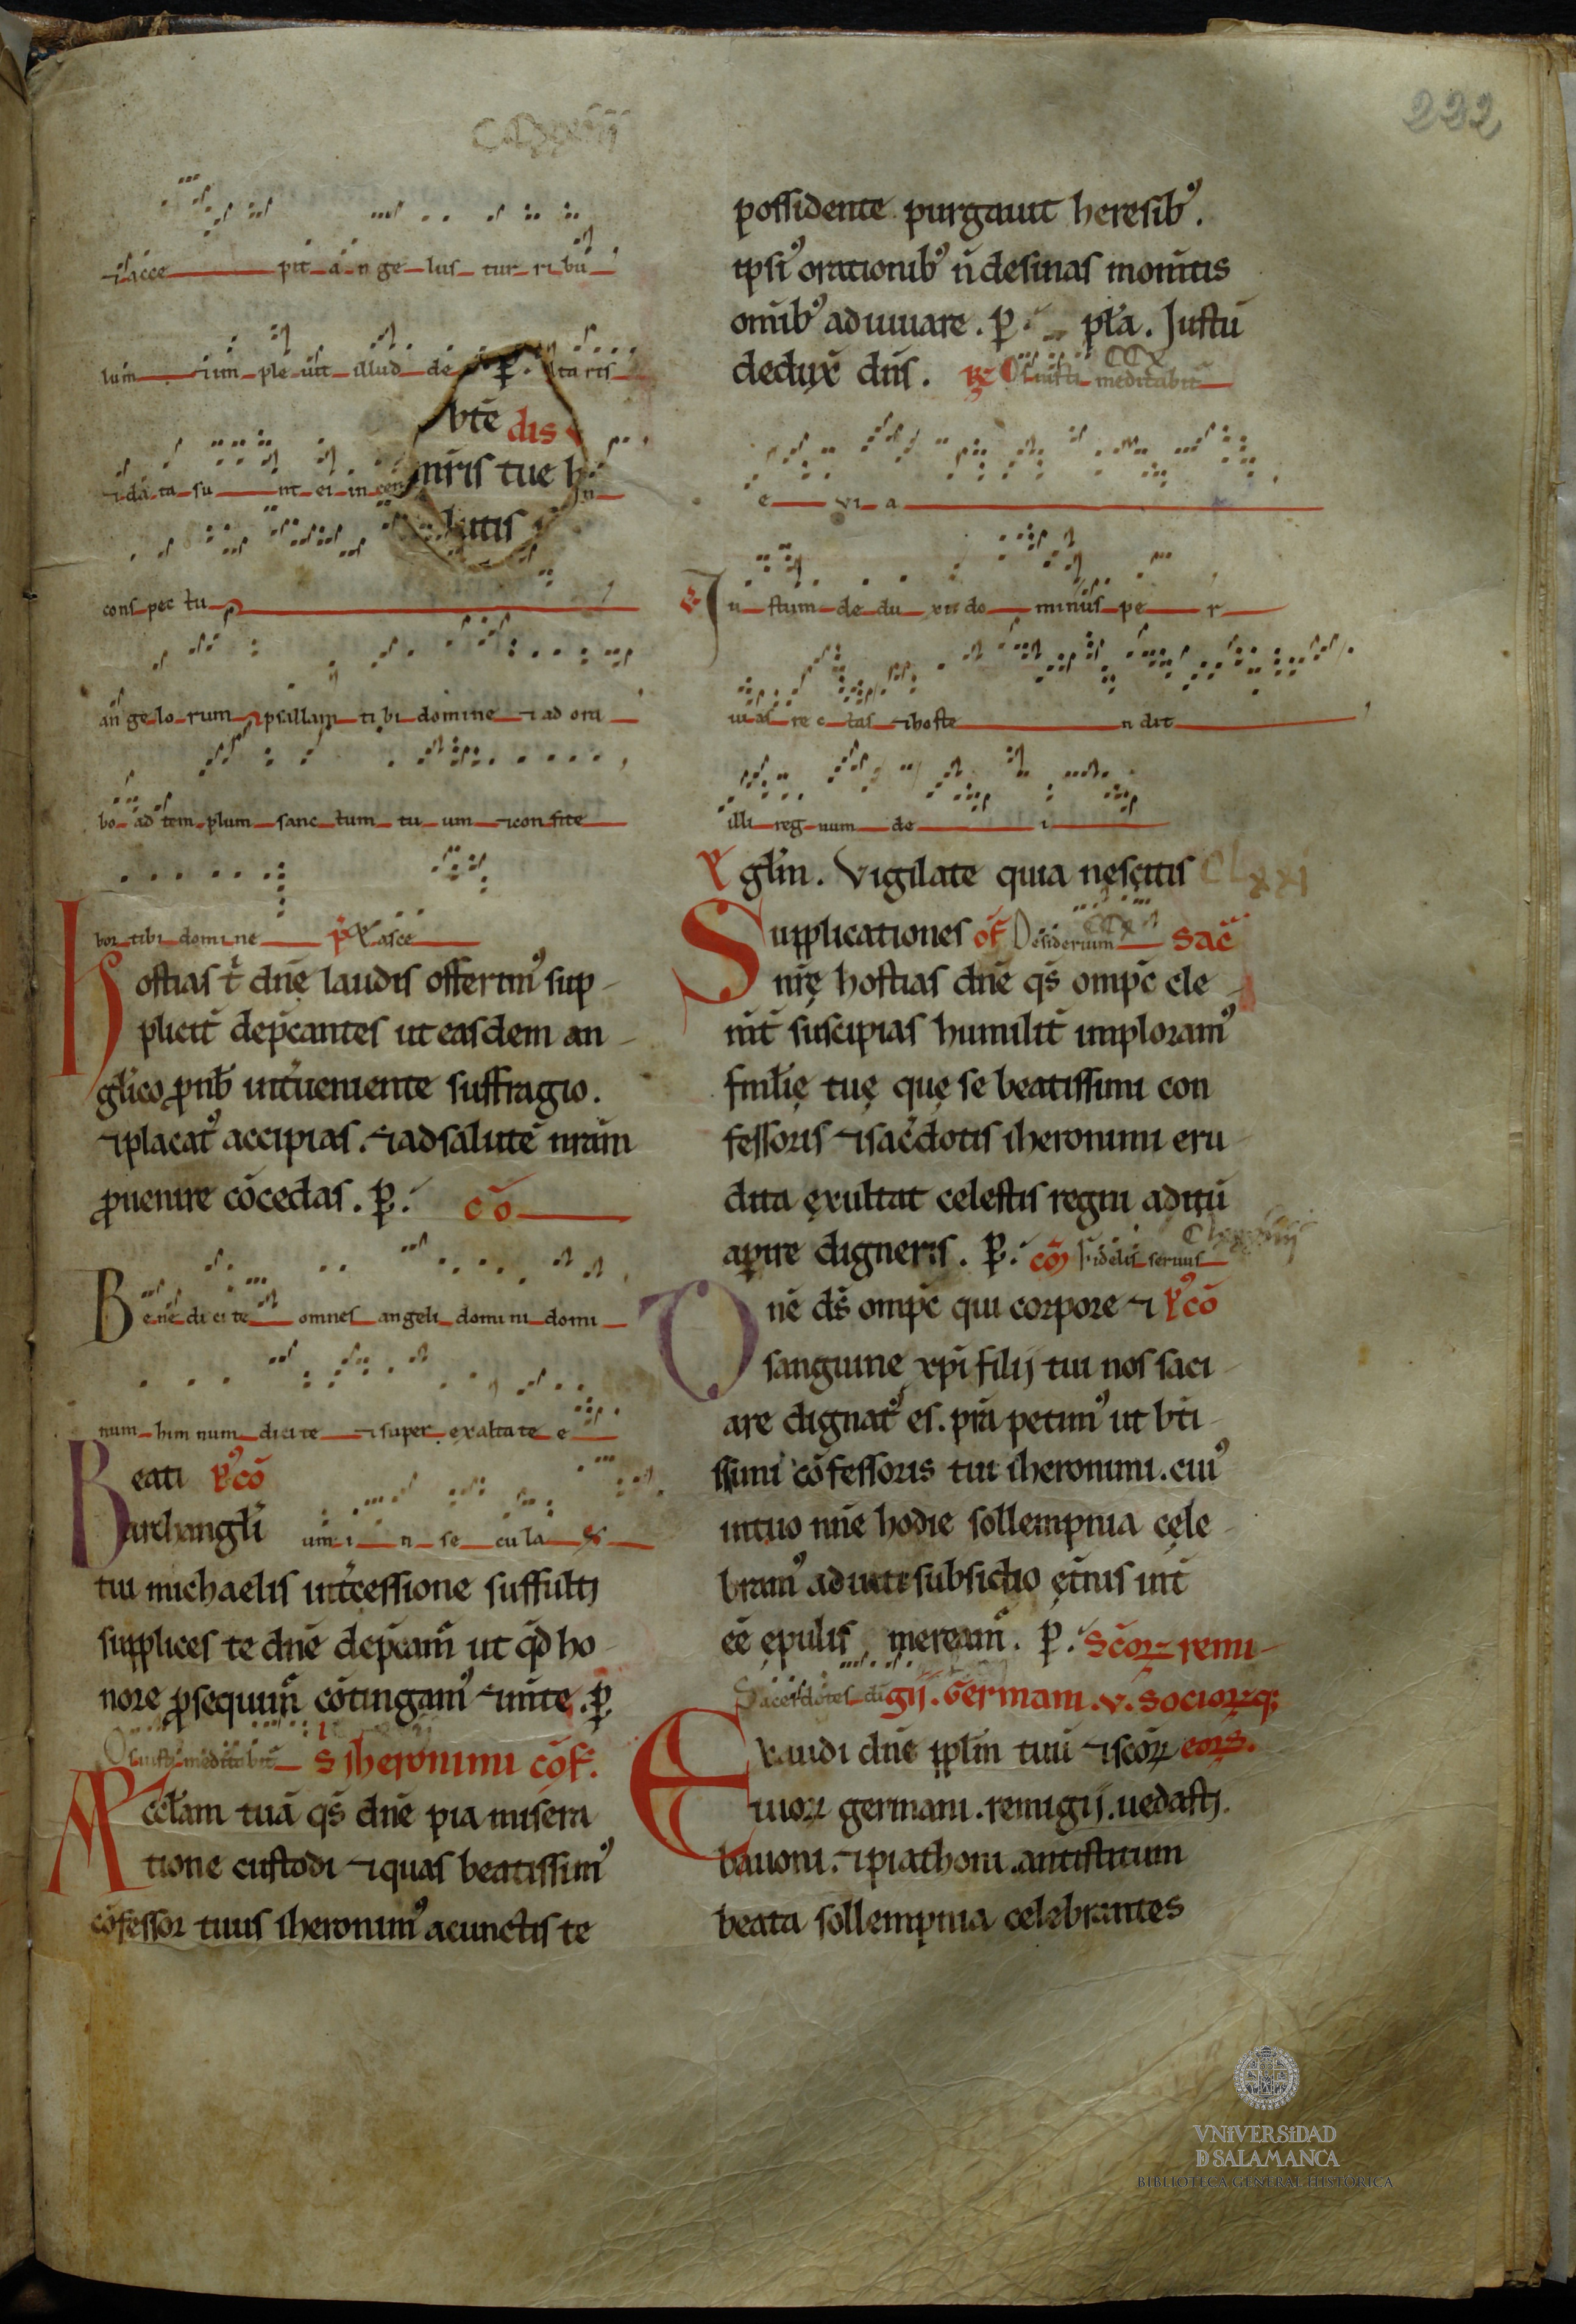 222
⁊ acce pit an ge lus tur ri bu
lum ⁊ im ple uit illud de P. lta ris
btē dis
⁊ da ta su nt ei in cen nr̄is tue h
lutis
cons pec tu
an ge lo rum psallam ti bi domine ⁊ ad ora
bo ad tem plum sanc tum tu um ⁊ con fite
bor tibi domine asce
Hostias t̄ dn̄ę laudis offerim᷒ sup
plicit̄ dep̄cantes ut easdem an
gl̄ico ꝓ nob̄ int̄ueniente suffragio.
⁊ placat᷒ accipias. ⁊ ad salutē nr̄am
ꝓuenire cōcedas. P. cō
Be ne di ci te omnes angeli domini domi
num him num dicite ⁊ super exaltate e
Beati P᷒cō
archangl̄i um i n se cu la
tui michaelis int̄cessione suffulti
supplices te dn̄e dep̄cam̄ ut qd̄ ho
nore ꝓsequim̄ cōtingam᷒ ⁊ mte. P.
Os iusti meditabit̄ S iheronimi cōf.
Aeccl̄am tuā qs̄ dn̄e pia misera
tione custodi ⁊ quas beatissim᷒
cōfessor tuus iheronim᷒ a cunctis te
possidente purgauit heresib᷒.
ipsi᷒ orationib᷒ n̄ desinas monitis
om̄ib᷒ adiuuare. P. pl̄a. Justū
dedux̄ dn̄s. R Os iusti meditabit̄ CCX
e vi a
Ju stum de du xit do minus pe r
uias re c tas ⁊ hoste n dit
illi reg num de i
gl̄m. Vigilate quia nescitis CLxxi
Supplicationes of̄ Desiderium CCx sac̄
nr̄ę hostias dn̄e qs̄ omp̄c cle
nit̄ suscipias humilit̄ imploram᷒
fmil̄ię tuę quę se beatissimi con
fessoris ⁊ sac̄dotis iheronimi eru
dita exultat celestis regni aditū
aꝑire digneris. P. cō Fidelis seruus
Dn̄e ds̄ omp̄c qui corpore ⁊ P᷒cō
sanguine xp̄i filij tui nos saci
are dignat᷒ es. pr̄a petim᷒ ut bt̄i
ssimi cōfessoris tui iheronimi. cui᷒
in tuo nn̄e hodie sollempnia cele
bram᷒ adiuti subsidio ęt̄nis int̄
eē epulis mereām. P. Scōꝝ remi
Sacerdotes di gij. Germani. v. Socioꝝq;
Exaudi dn̄e ppl̄m tuū ⁊ scōꝝ eoꝝ.
tuoꝝ germani. remigij. uedasti.
bauoni. ⁊ piathoni. antistitum
beata sollempnia celebrantes
VNIVERSiDAD
D SALAMANCA
BIBLIOTECA GENERAL HISTÓRICA